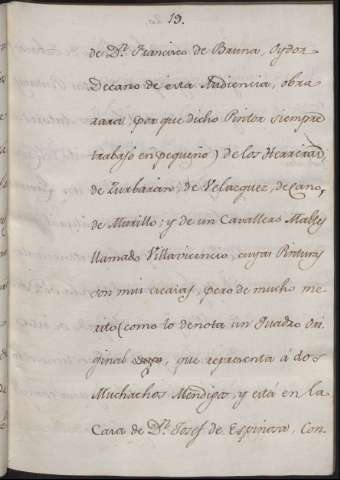 19.
de Dn. Francisco de Bruna, Oydor
Decano de esta Audiencia, obra
rara, por que dicho Pintor siempre
trabajó en pequeño) de los Herreras,
de Zurbaran, de Velazquez, de Cano,
de Murillo; y de un Cavallero Maltes
llamado Villavicencio, cuyas Pinturas
son mui escasas, pero de mucho me-
rito (como lo denota un Quadro ori-
ginal que representa á dos
Muchachos Mendigos, y está en la
Casa de Dn. Josef de Espinosa, Con-